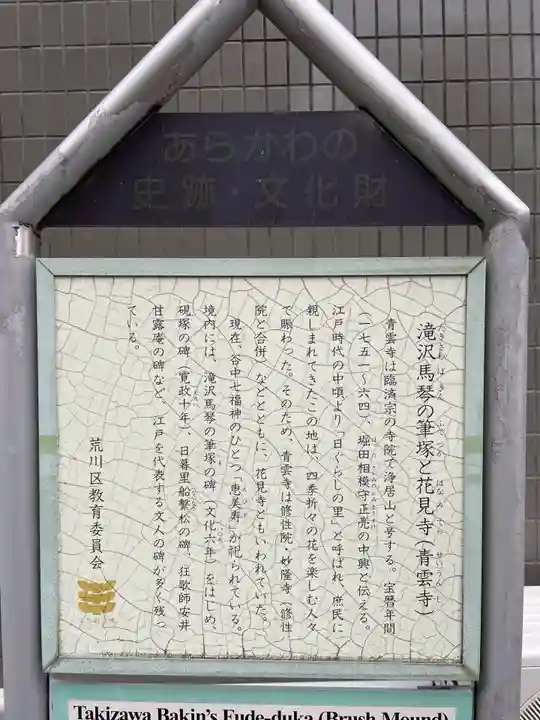 あらかわの
史跡・文化財
滝沢馬琴の筆塚と花見寺(青雲寺)
青雲寺は臨済宗の寺院で浄居山と号する。宝暦年間
(一七五一〜六四)、堀田相模守正亮の中興と伝える。
江戸時代の中頃より「日ぐらしの里」と呼ばれ、庶民に
親しまれてきたこの地は、四季折々の花を楽しむ人々
で賑わった。そのため、青雲寺は修性院・妙隆寺(修性
院と合併)などとともに、花見寺ともいわれていた。
現在、谷中七福神のひとつ「恵美寿」が祀られている。
境内には、滝沢馬琴の筆塚の碑(文化六年)をはじめ、
硯塚の碑(寛政十年)、日暮里船繋松の碑、狂歌師安井
甘露庵の碑など、江戸を代表する文人の碑が多く残っ
ている。
荒川区教育委員会
Takizawa Bakin's Fude-duka (Brush Mound)